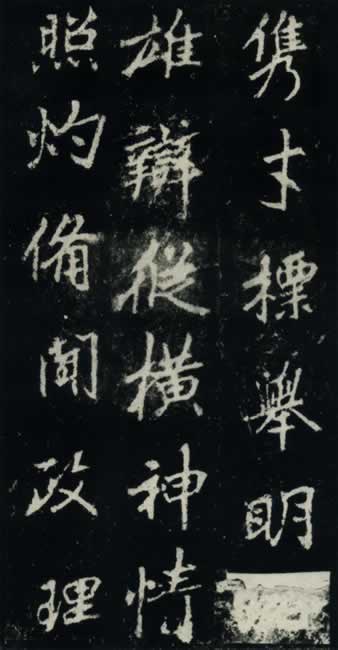 儁才標舉明
雄辯縱橫神情
照灼備聞政理